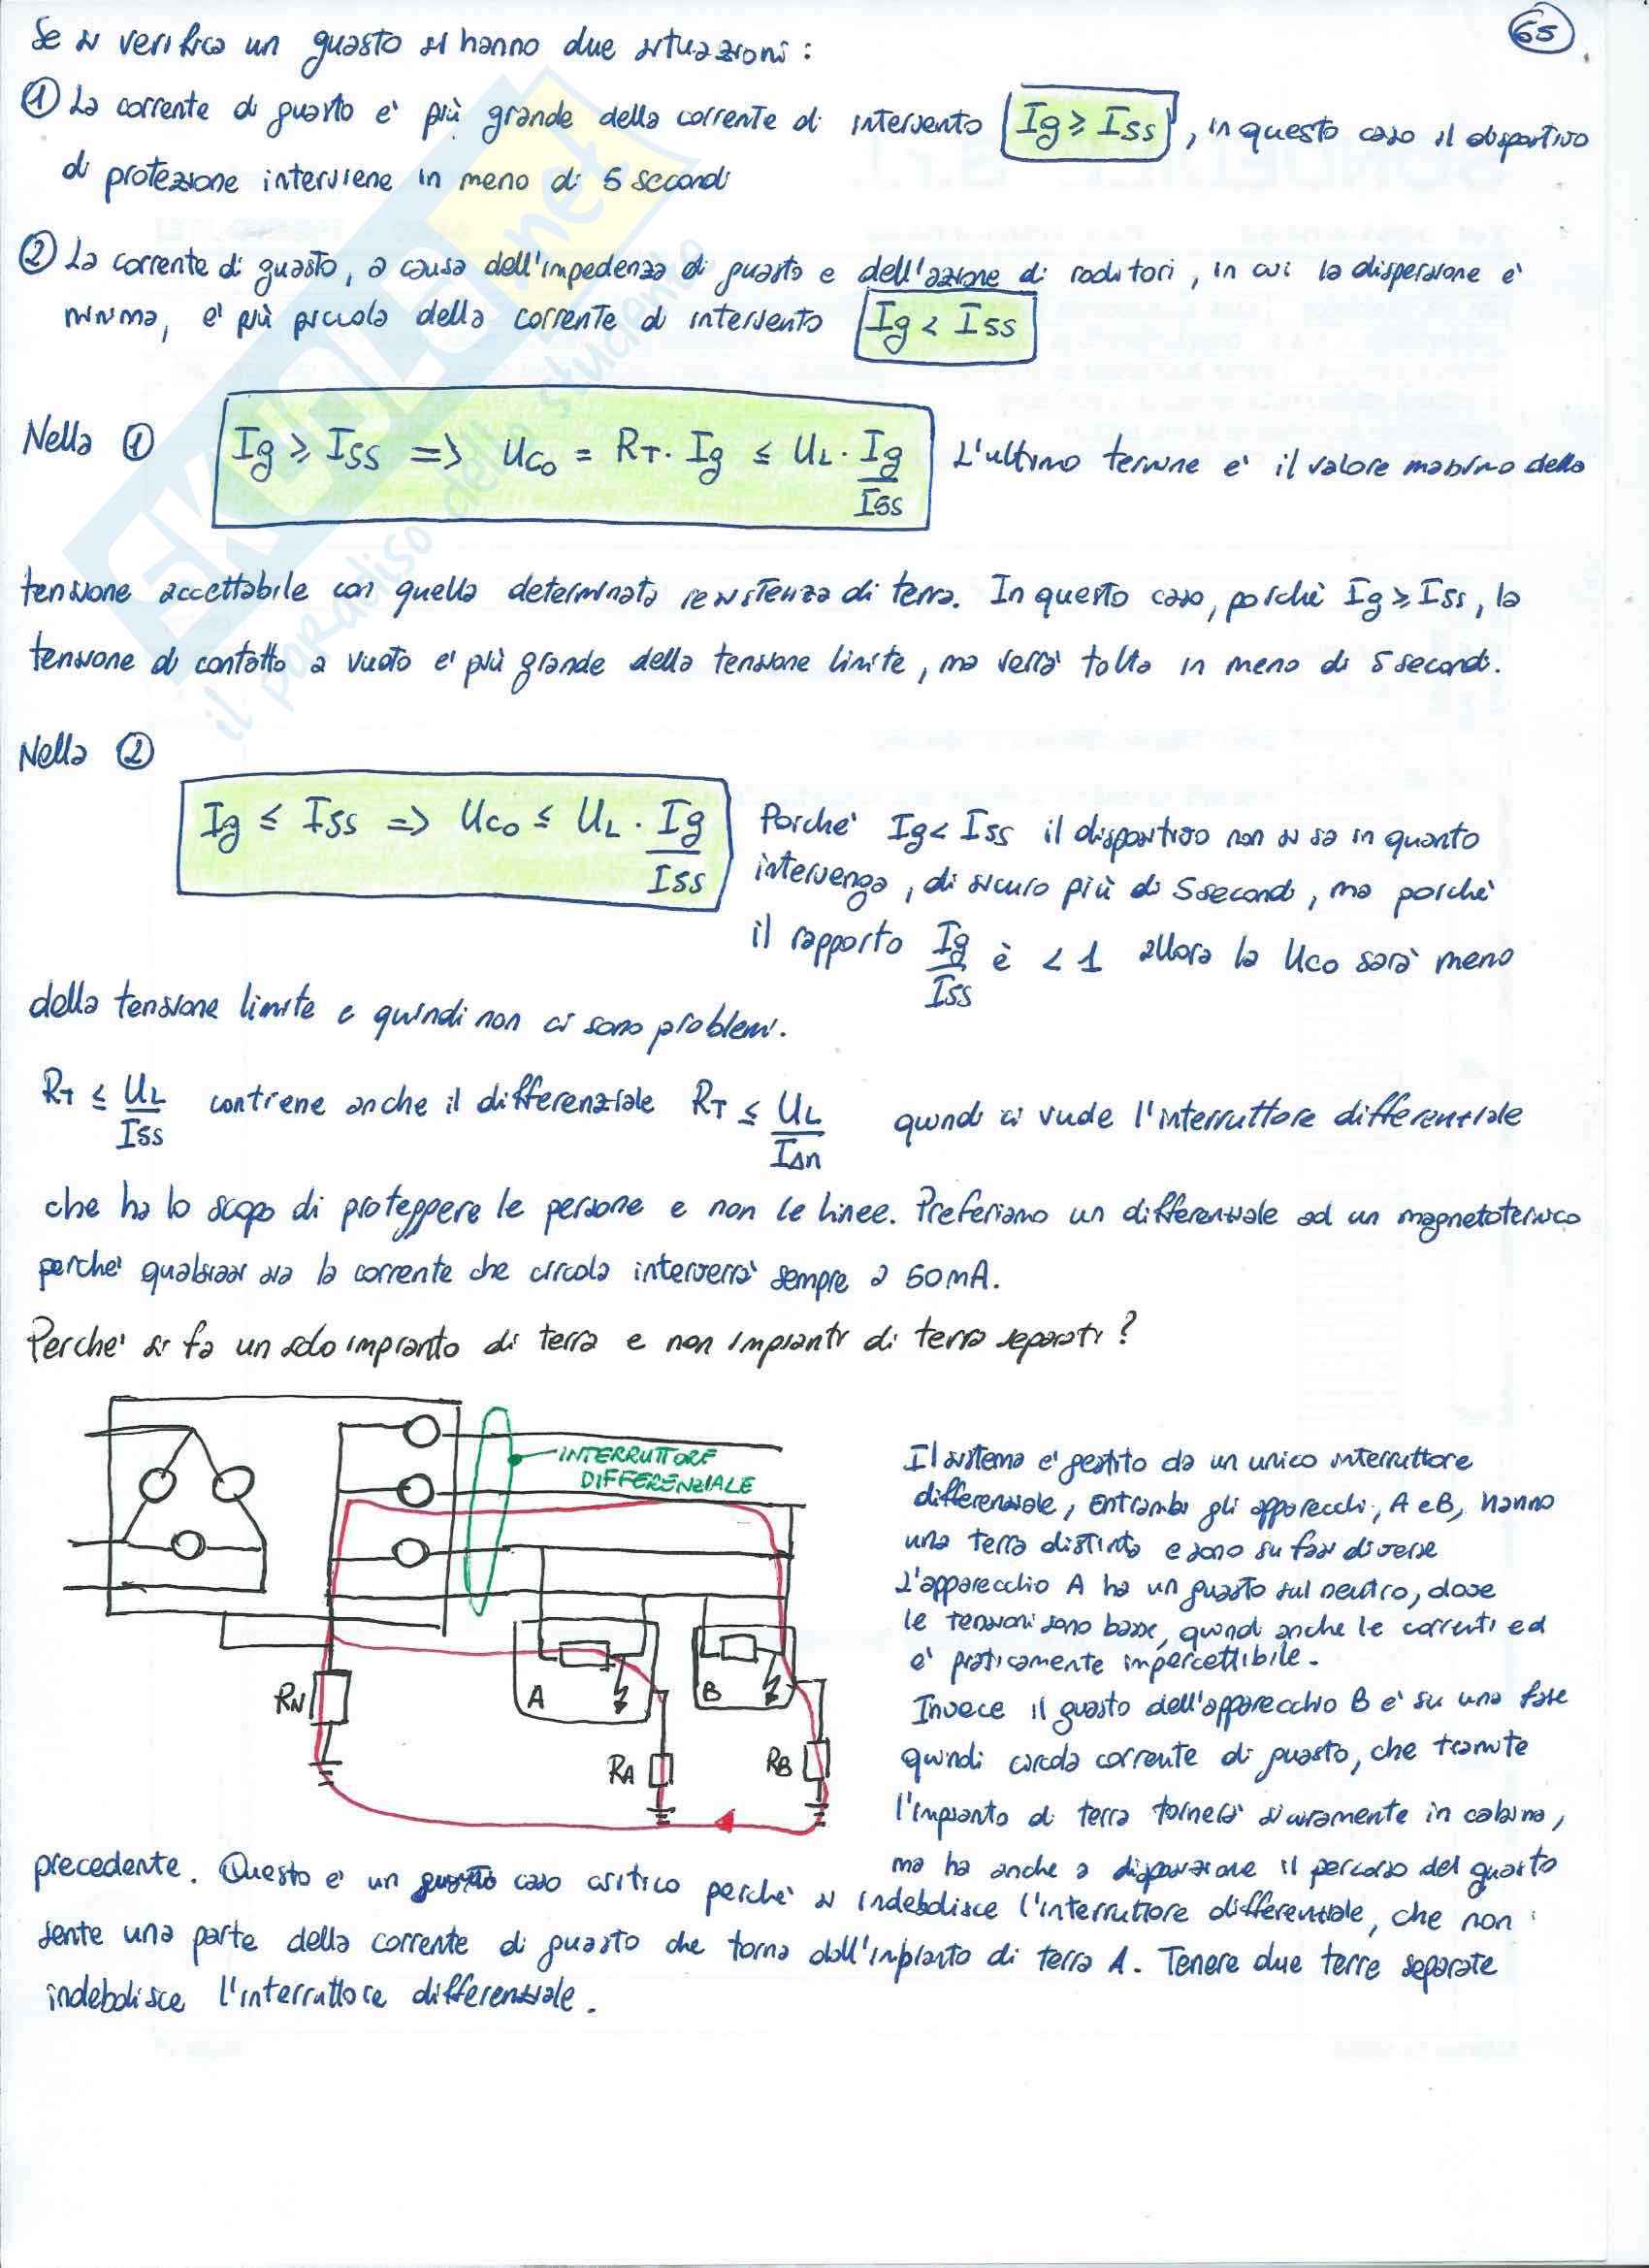 65
Se si verifica un guasto si hanno due situazioni:
① La corrente di guasto e' più grande della corrente di intervento Ig ≥ Iss, in questo caso il dispositivo
di protezione interviene in meno di 5 secondi
② La corrente di guasto, a causa dell'impedenza di guasto e dell'azione di radiatori, in cui la dispersione e'
minima, e' più piccola della corrente di intervento Ig < Iss
Nella ① Ig ≥ Iss => Uco = RT · Ig ≤ UL · Ig/Iss L'ultimo termine e' il valore massimo della
tensione accettabile con quella determinata resistenza di terra. In questo caso, poichè Ig ≥ Iss, la
tensione di contatto a vuoto e' più grande della tensione limite, ma verrà tolta in meno di 5 secondi.
Nella ②
Ig ≤ Iss => Uco ≤ UL · Ig/Iss Poiche' Ig < Iss il dispositivo non si sa in quanto
intervenga, di sicuro più di 5 secondi, ma poichè
il rapporto Ig/Iss è < 1 allora la Uco sarà meno
della tensione limite e quindi non ci sono problemi.
RT ≤ UL/Iss contiene anche il differenziale RT ≤ UL/IΔn quindi ci vuole l'interruttore differenziale
che ha lo scopo di proteggere le persone e non le linee. Preferiamo un differenziale ad un magnetotermico
perche' qualsiasi sia la corrente che circola interverra' sempre a 50mA.
Perche' si fa un solo impianto di terra e non impianti di terra separati?
INTERRUTTORE
DIFFERENZIALE
RN
A
B
RA
RB
Il sistema e' gestito da un unico interruttore
differenziale, entrambi gli apparecchi, A e B, hanno
una terra distinta e sono su fasi diverse
L'apparecchio A ha un guasto sul neutro, dove
le tensioni sono basse, quindi anche le correnti ed
e' praticamente impercettibile.
Invece il guasto dell'apparecchio B e' su una fase
quindi circola corrente di guasto, che tramite
l'impianto di terra tornerà sicuramente in cabina,
ma ha anche a disposizione il percorso del guasto
precedente. Questo e' un caso critico perche' si indebolisce l'interruttore differenziale, che non
sente una parte della corrente di guasto che torna dall'impianto di terra A. Tenere due terre separate
indebolisce l'interruttore differenziale.
SKUOLA.net
il paradiso dello studente